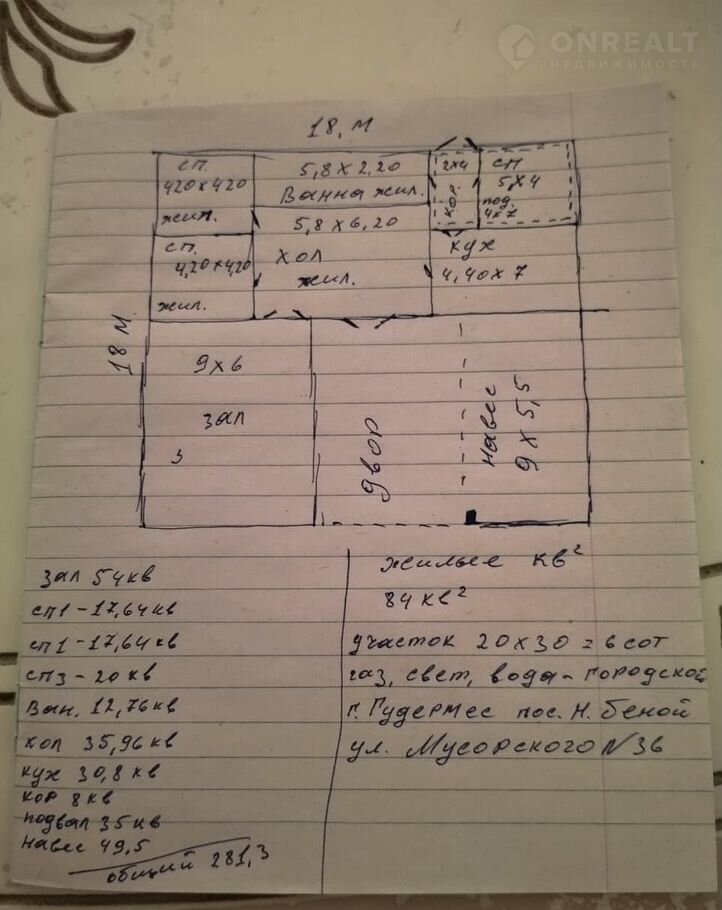 ONREALT
НЕДВИЖИМОСТЬ
18, м
сп.
420 x 420
жил.
5,8 x 2,20
Ванна жил.
2x4
кор.
сп
5x4
под.
4x7
5,8 x 6,20
хол
жил.
сп.
4,20 x 4,20
жил.
кух
4,40 x 7
18 м
9 x 6
зал
3
двор
навес
9 x 5,5
зал 54 кв
сп1 - 17,64 кв
сп1 - 17,64 кв
сп3 - 20 кв
Ван. 12,76 кв
хол 35,96 кв
кух 30,8 кв
кор 8 кв
подвал 35 кв
навес 49,5
общий 281,3
жилые кв²
84 кв²
участок 20 x 30 = 6 сот
газ, свет, вода - городской
г. Гудермес пос. Н. Беной
ул. Мусорского N 36